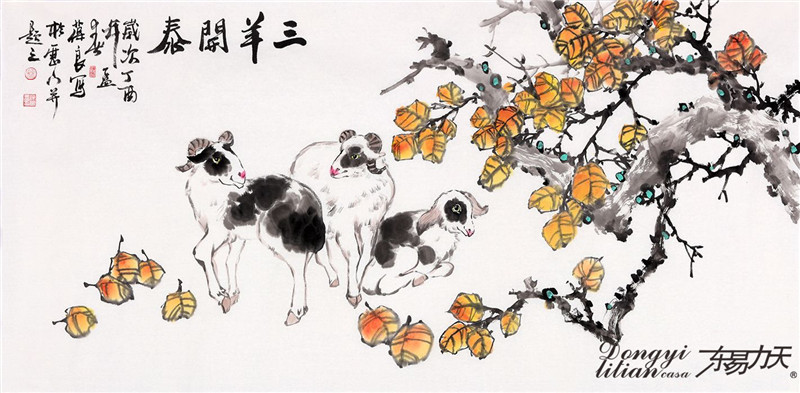 三羊開泰
歲次丁酉
年孟
春蔣良寫
於農心并
題之
Dongyi
litian casa
东易力天®